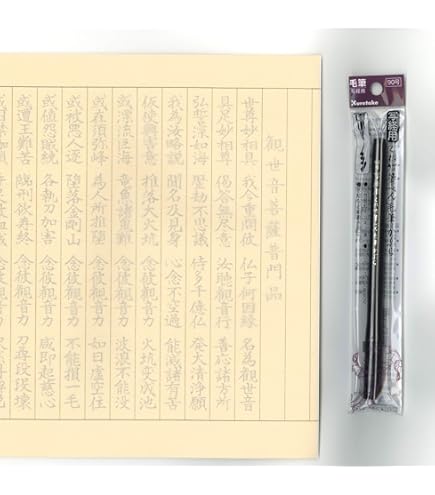 觀世音菩薩普門品
世尊妙相具 我今重問彼 仏子何因縁 名為觀世音
具足妙相尊 偈答無盡意 汝聴觀音行 善應諸方所
弘誓深如海 歴劫不思議 侍多千億仏 發大清浄願
我為汝略説 聞名及見身 心念不空過 能滅諸有苦
假使興害意 推落大火坑 念彼觀音力 火坑変成池
或漂流巨海 龍魚諸鬼難 念彼觀音力 波浪不能没
或在須弥峰 為人所推堕 念彼觀音力 如日虚空住
或被悪人逐 堕落金剛山 念彼觀音力 不能損一毛
或値怨賊繞 各執刀加害 念彼觀音力 咸即起慈心
或遭王難苦 臨刑欲寿終 念彼觀音力 刀尋段段壊
毛筆
90号
Kuretake
写経用